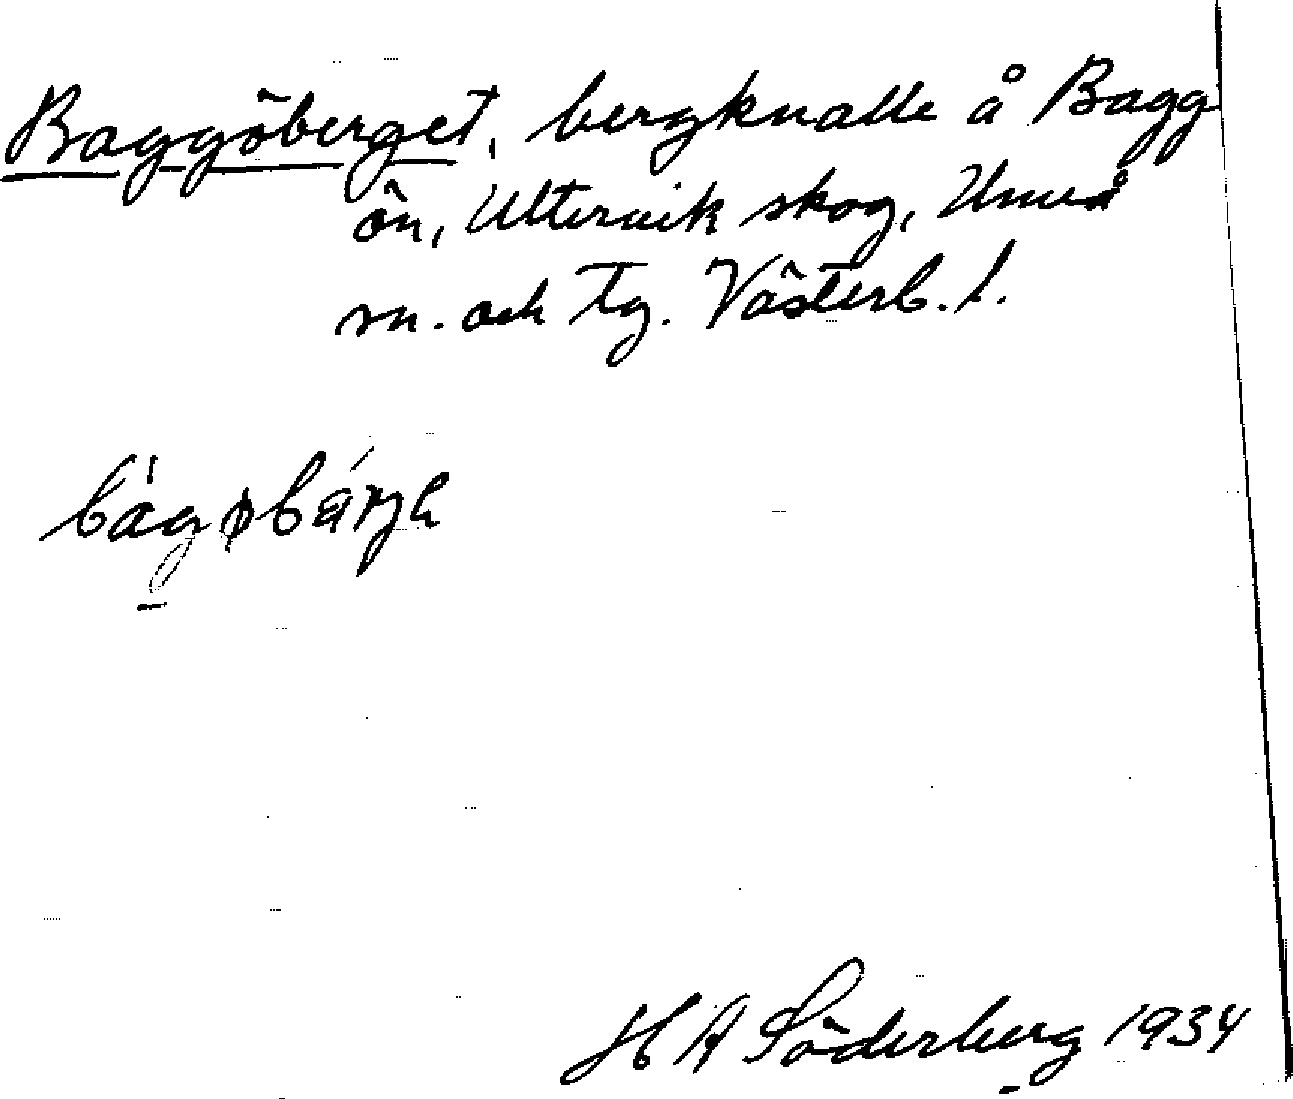 Baggöberget, bergknalle å Bagg
ön, Ultervik skog, Umeå
sn. och tg. Västerb. l.
H A Söderberg 1934